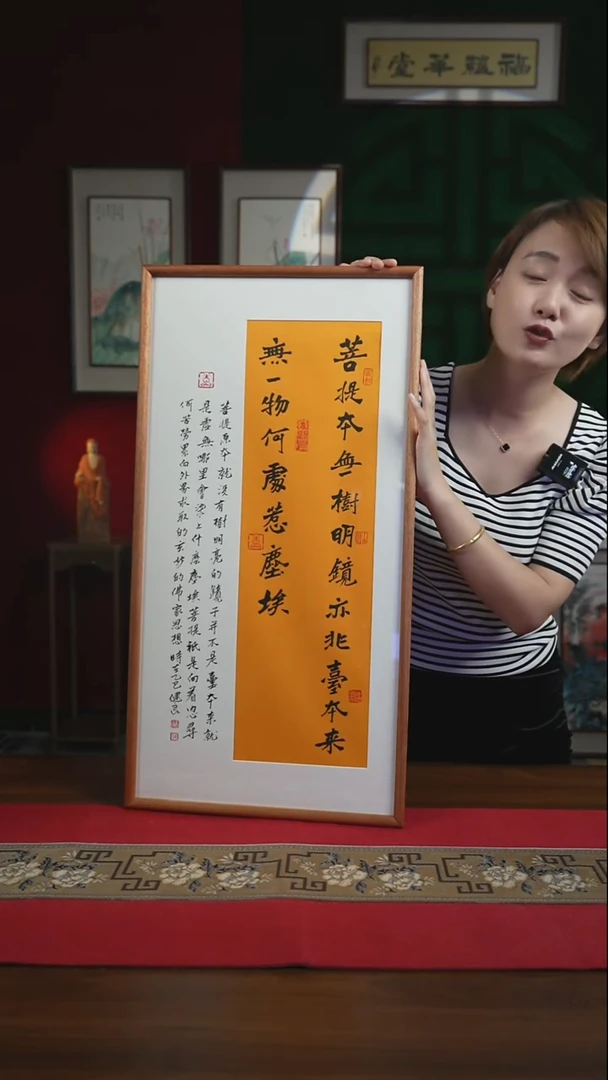 福蘊華堂
菩提本無樹明鏡亦非臺本来
無一物何處惹塵埃
菩提原本就没有樹明亮的鏡子并不是臺本来就
是虚無哪里會染上什麽塵埃菩提祇是向着内心尋
何苦勞累向外尋求取的玄妙的佛家思想時在乙巳健良